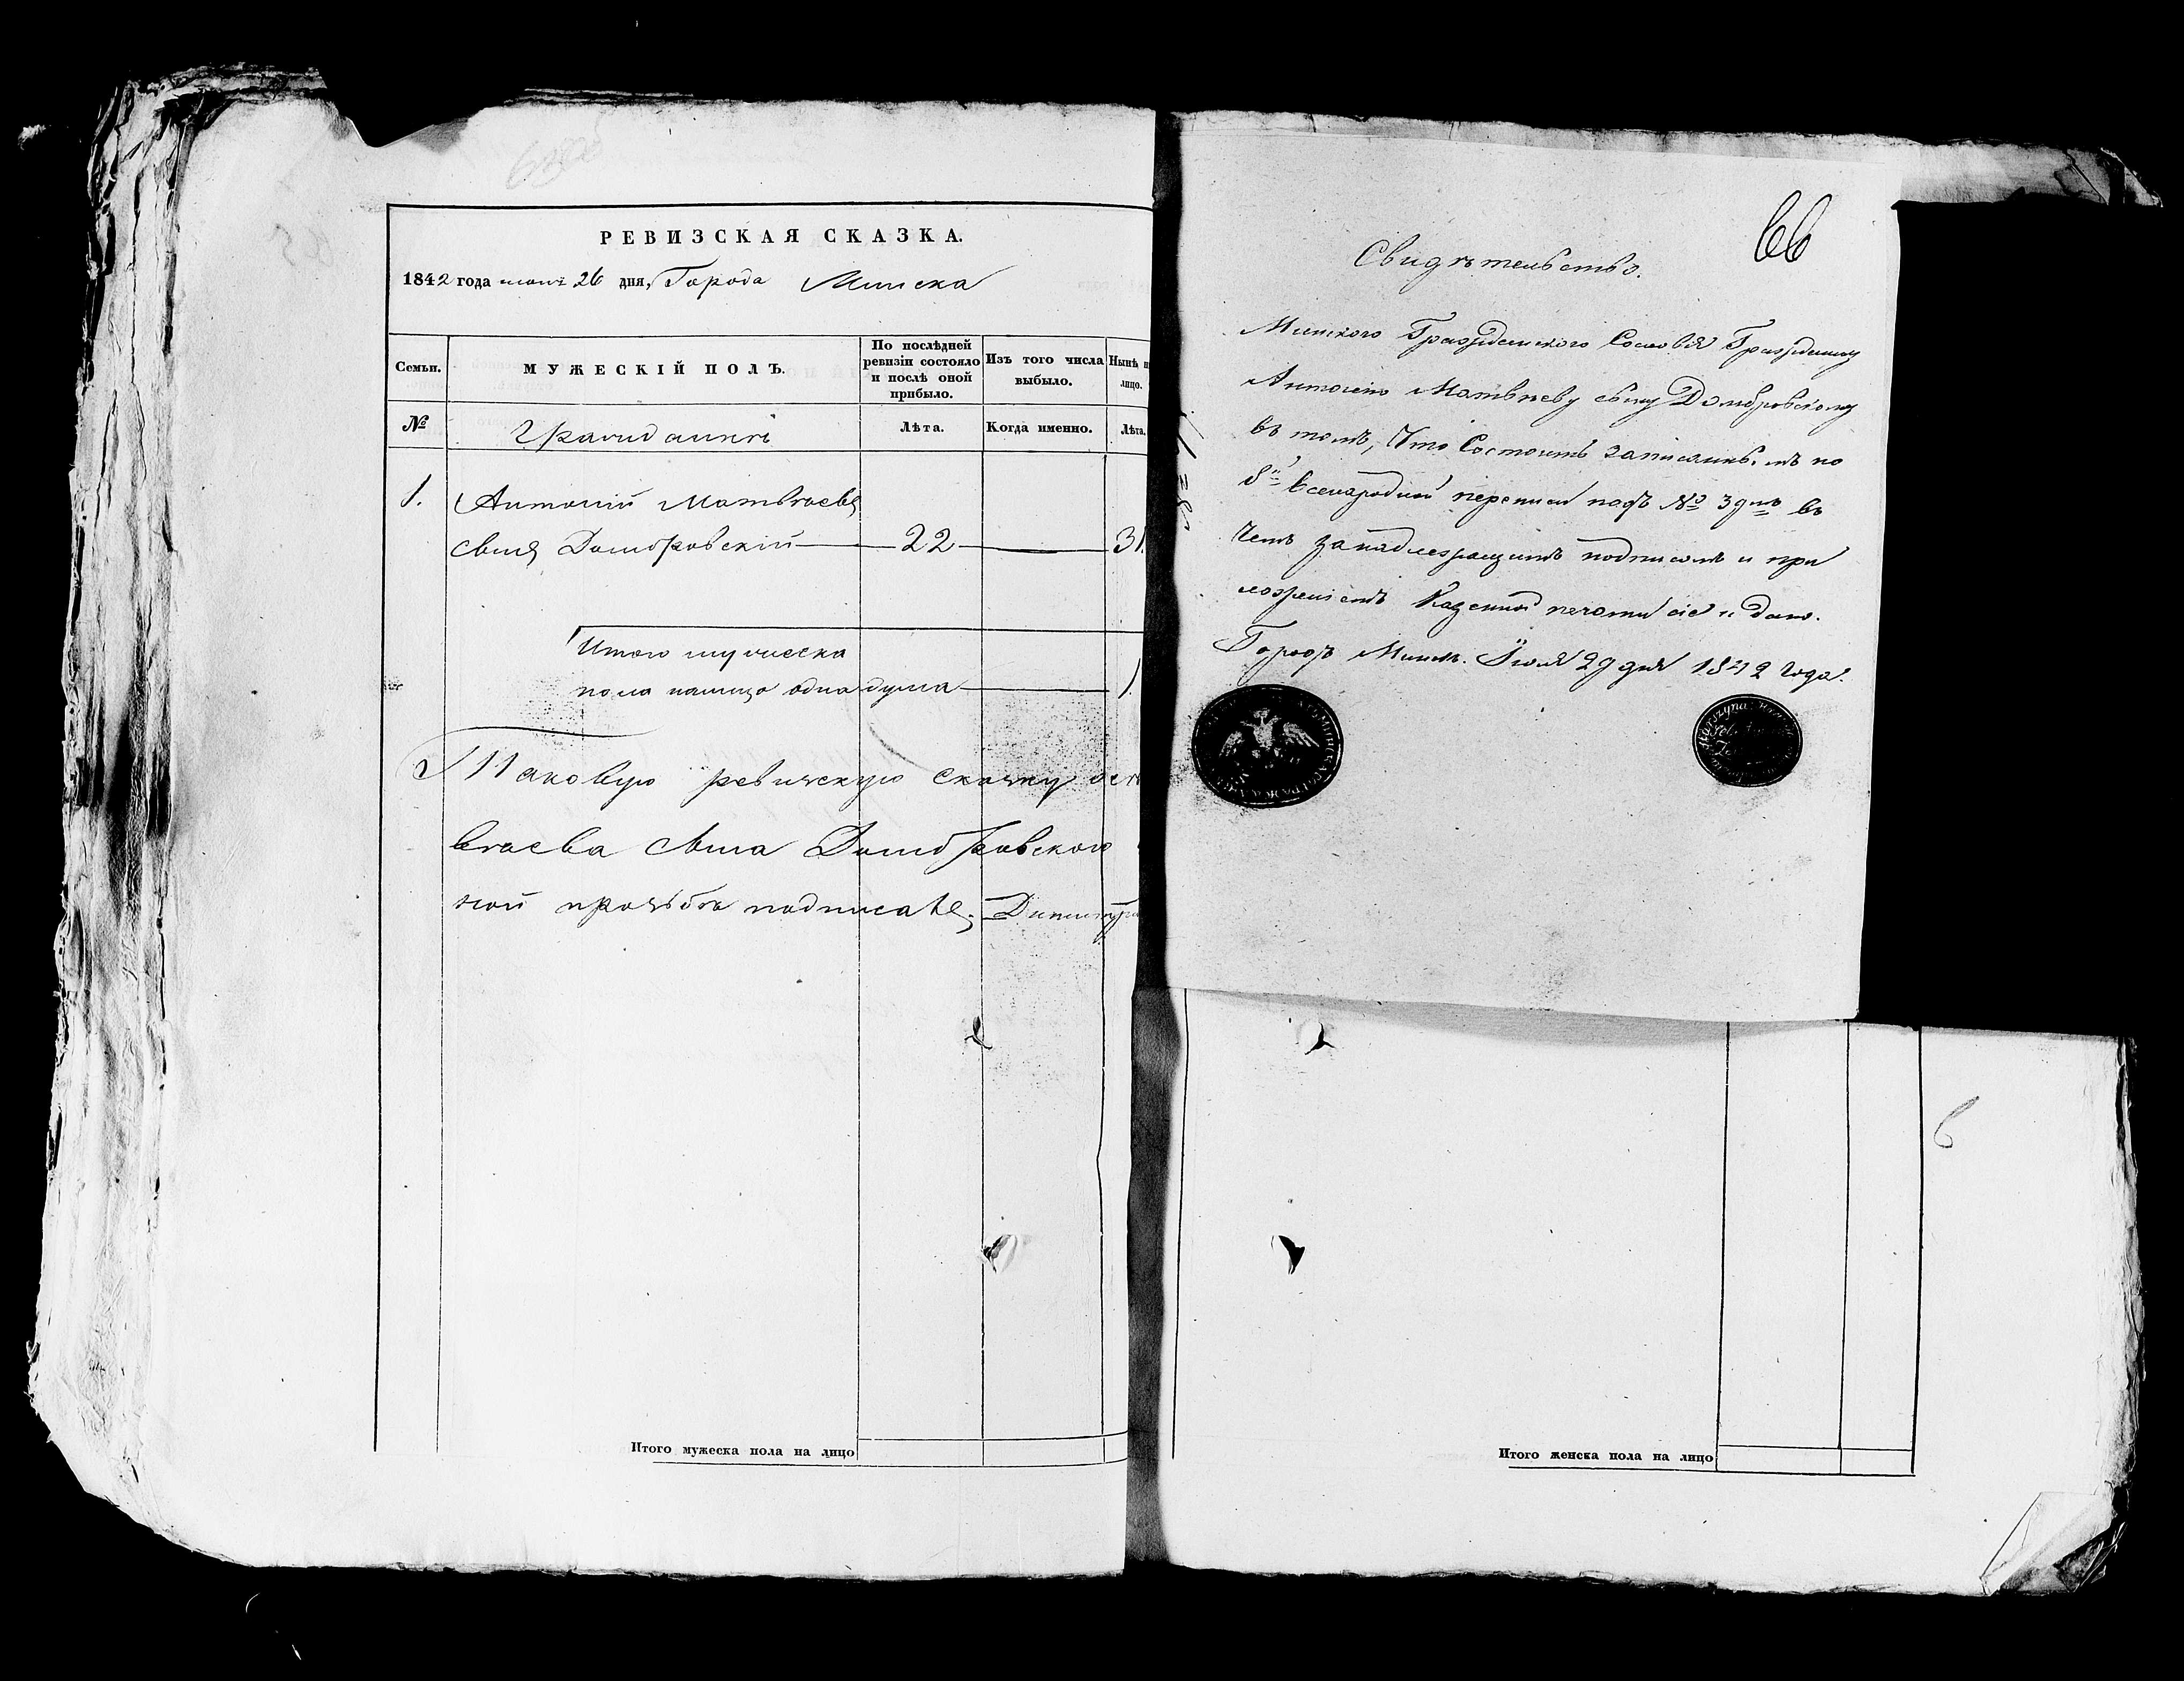 РЕВИЗСКАЯ СКАЗКА.
1842 года июня 26 дня, Города Минска
Семьи.
МУЖЕСКІЙ ПОЛЪ.
По послѣдней ревизіи состояло и послѣ оной прибыло.
Изъ того числа выбыло.
Нынѣ н лицо.
№
Гражданинъ
Лѣта.
Когда именно.
Лѣта.
1. Антоній Матвѣевъ
сынъ Домбровскій 22 31
Итого мужеска
пола налицо одна душа 1
Таковую ревизскую сказку
вѣева сына Домбровскаго
ной прозьбѣ подписалъ. Димитрі
Итого мужеска пола на лицо
66
Свидѣтельство.
Минского Гражданского Сословія Гражданину
Антонію Матвѣеву сыну Домбровскому
въ томъ, Что Состоитъ записаннымъ по
8й всенародной переписи подъ № 39мъ въ
Чемъ за надлежащимъ подписомъ и при
ложеніемъ Казенной печати сіе и дано.
Городъ Минскъ. Іюля 29 дня 1842 года.
Итого женска пола на лицо